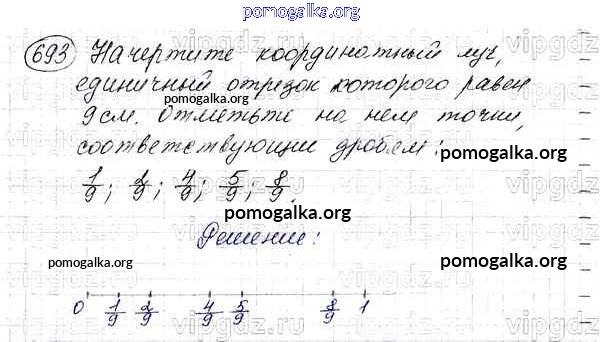 pomogalka.org
693 Начертите координатный луч,
единичный отрезок которого равен
pomogalka.org
9 см. Отметьте на нем точки,
соответствующие дробям:
pomogalka.org
1/9; 2/9; 4/9; 5/9; 8/9.
pomogalka.org
Решение:
pomogalka.org
pomogalka.org
0 1/9 2/9 4/9 5/9 8/9 1
vipgdz.ru